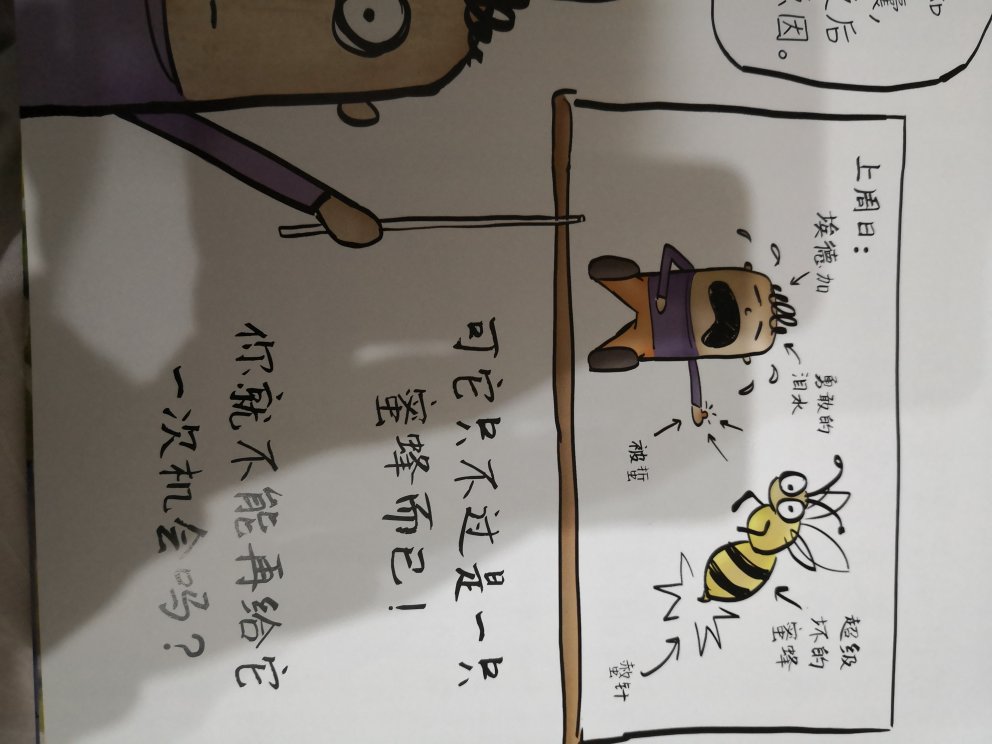 后
因。
上周日：
埃德加
勇敢的
泪水
被蜇
超级
坏的
蜜蜂
螫针
可它只不过是一只
蜜蜂而已！
你就不能再给它
一次机会吗？